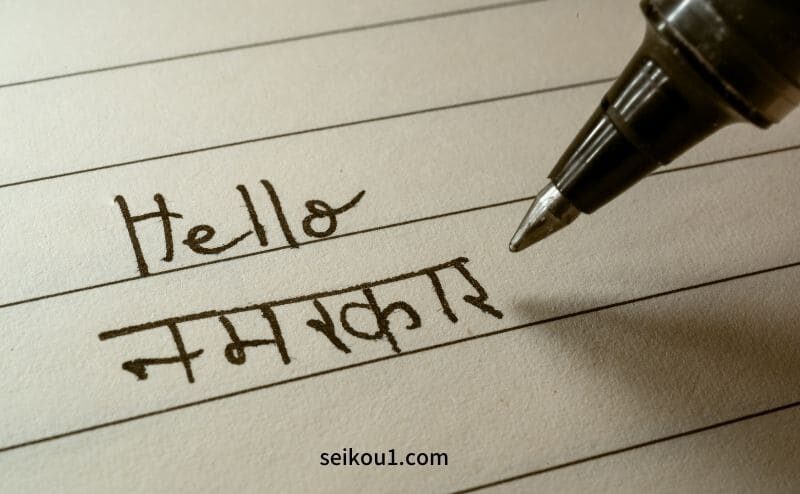 Hello
नमस्कार
seikou1.com